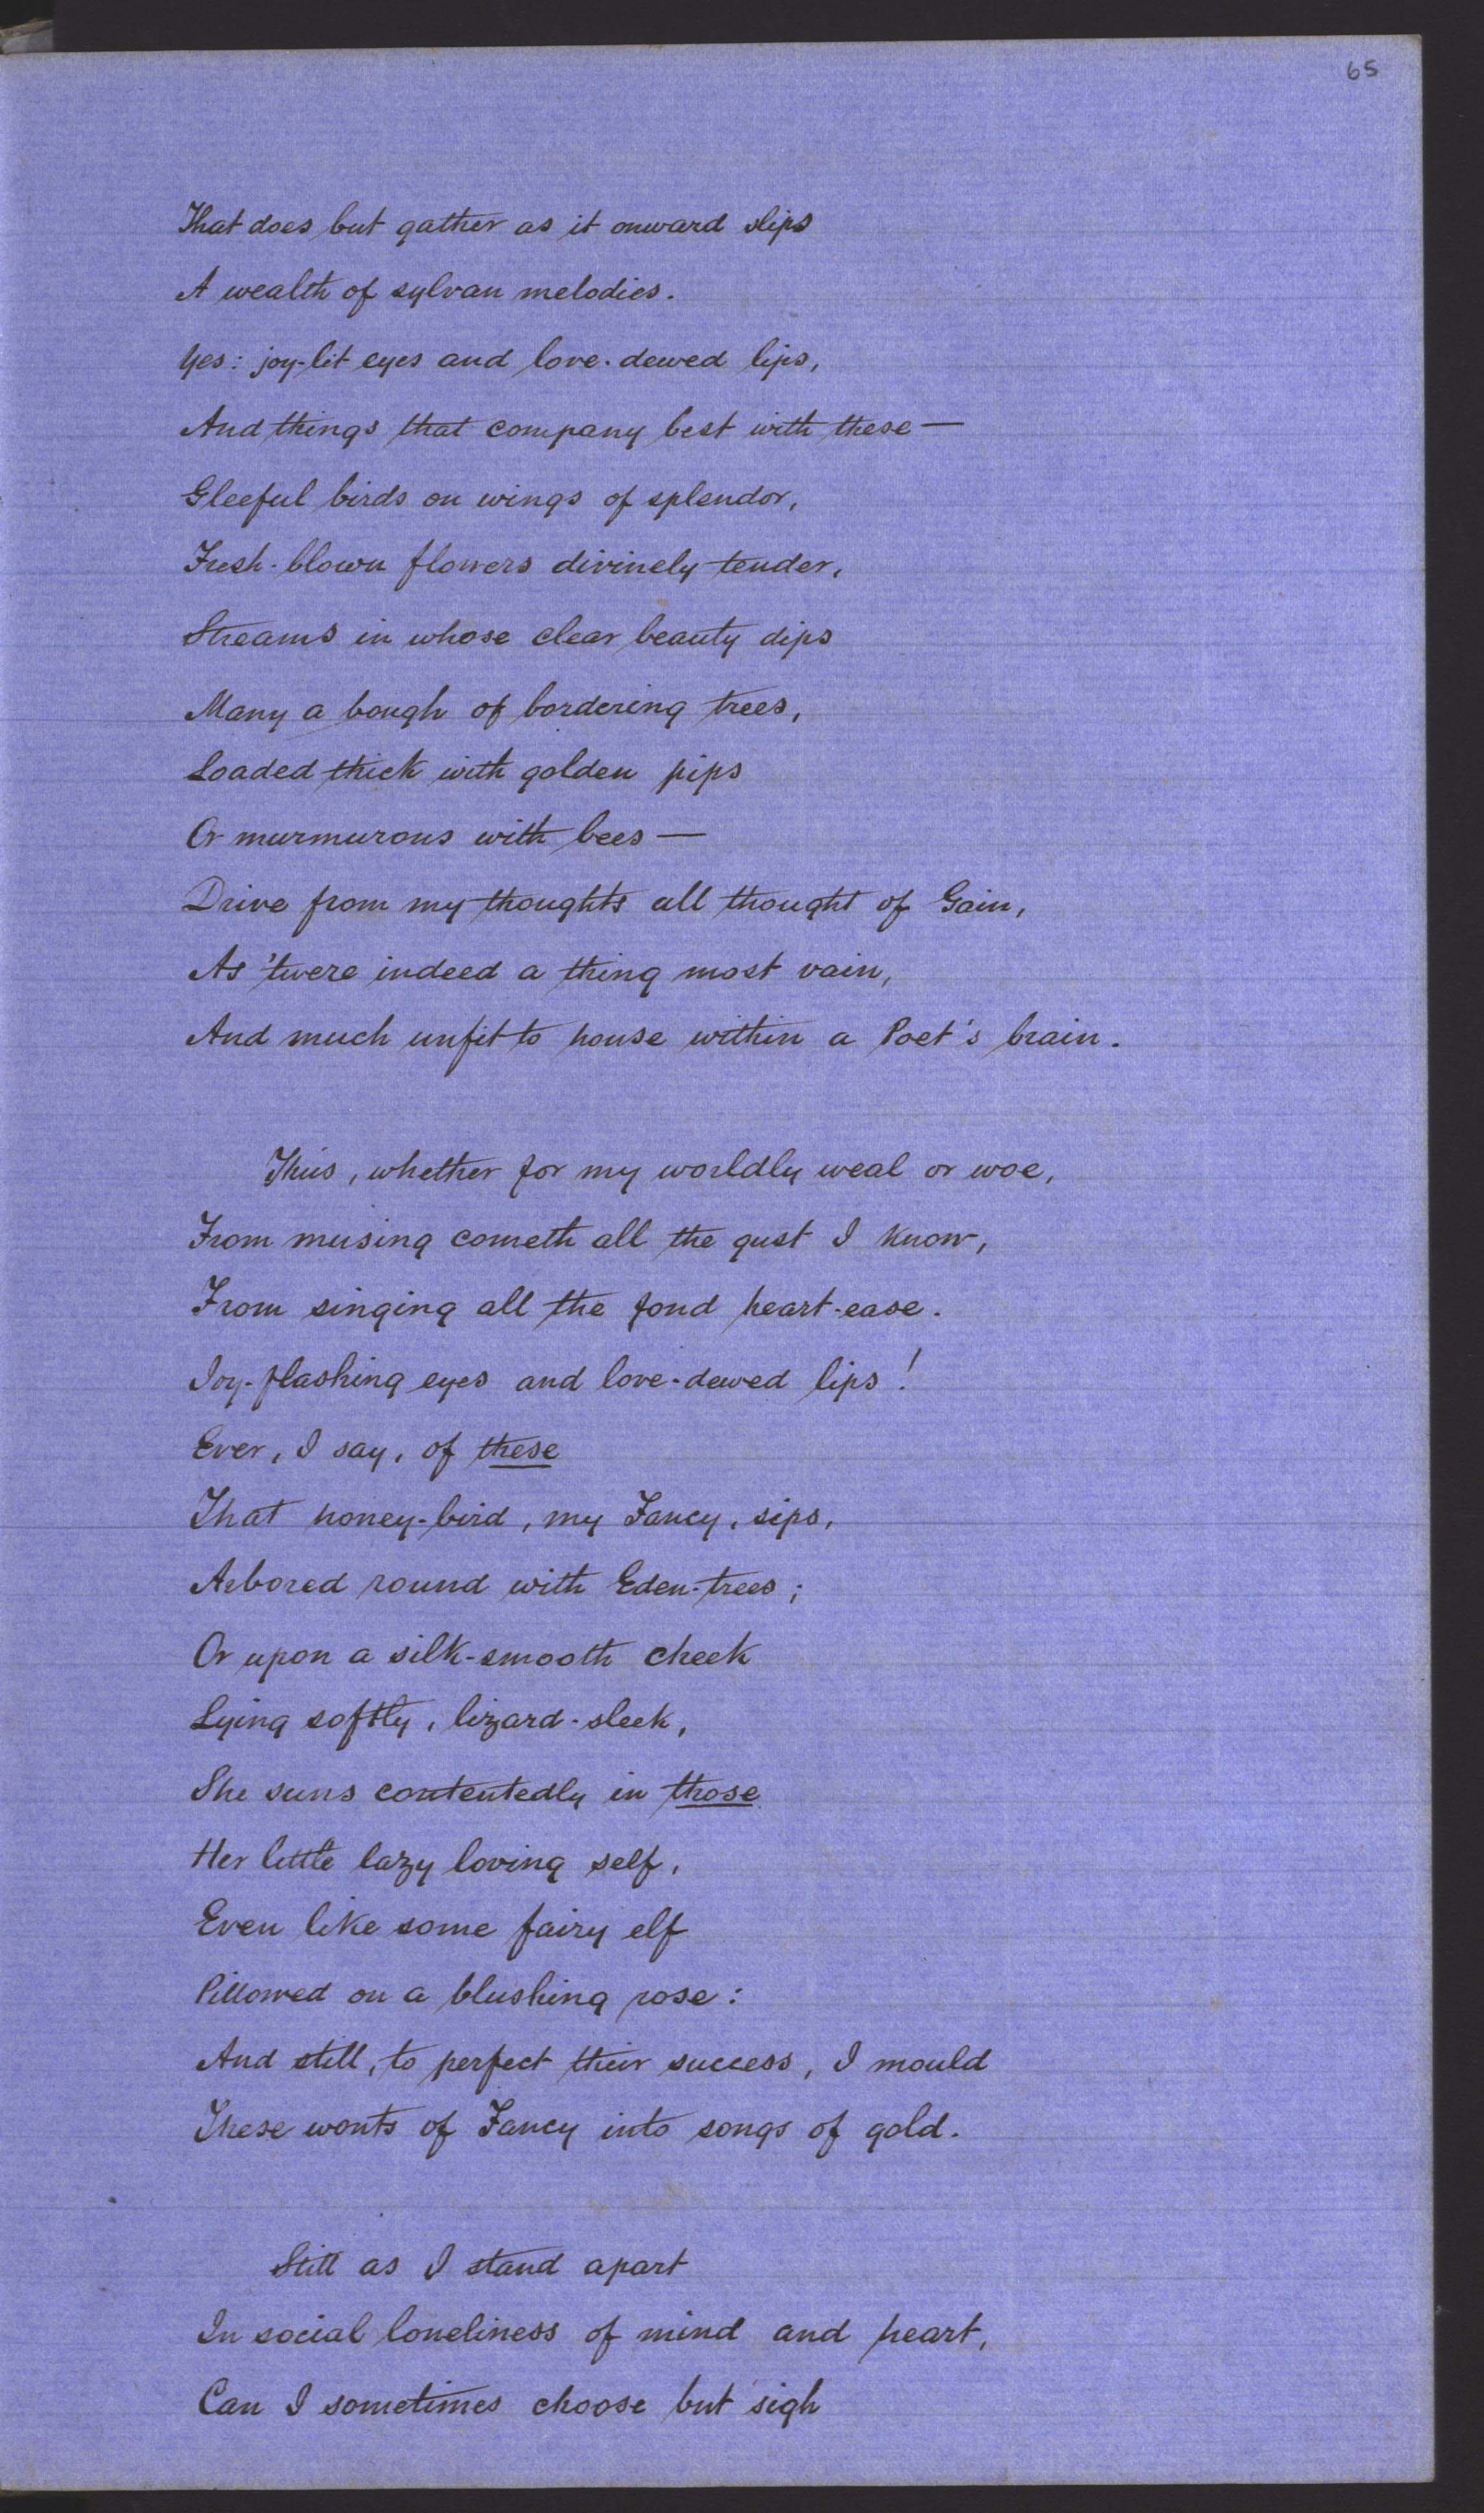 65
That does but gather as it onward slips
A wealth of sylvan melodies.
Yes: joy-lit eyes and love-dewed lips,
And things that company best with these—
Gleeful birds on wings of splendor,
Fresh-blown flowers divinely tender,
Streams in whose clear beauty dips
Many a bough of bordering trees,
Loaded thick with golden pips
Or murmurous with bees—
Drive from my thoughts all thought of Gain,
As 'twere indeed a thing most vain,
And much unfit to house within a Poet's brain.
Thus, whether for my worldly weal or woe,
From musing cometh all the gust I know,
From singing all the fond heart-ease.
Joy-flashing eyes and love-dewed lips!
Ever, I say, of these
That honey-bird, my Fancy, sips,
Arbored round with Eden-trees;
Or upon a silk-smooth cheek
Lying softly, lizard-sleek,
She suns contentedly in those
Her little lazy loving self,
Even like some fairy elf
Pillowed on a blushing rose:
And still, to perfect their success, I mould
These wonts of Fancy into songs of gold.
Still as I stand apart
In social loneliness of mind and heart,
Can I sometimes choose but sigh